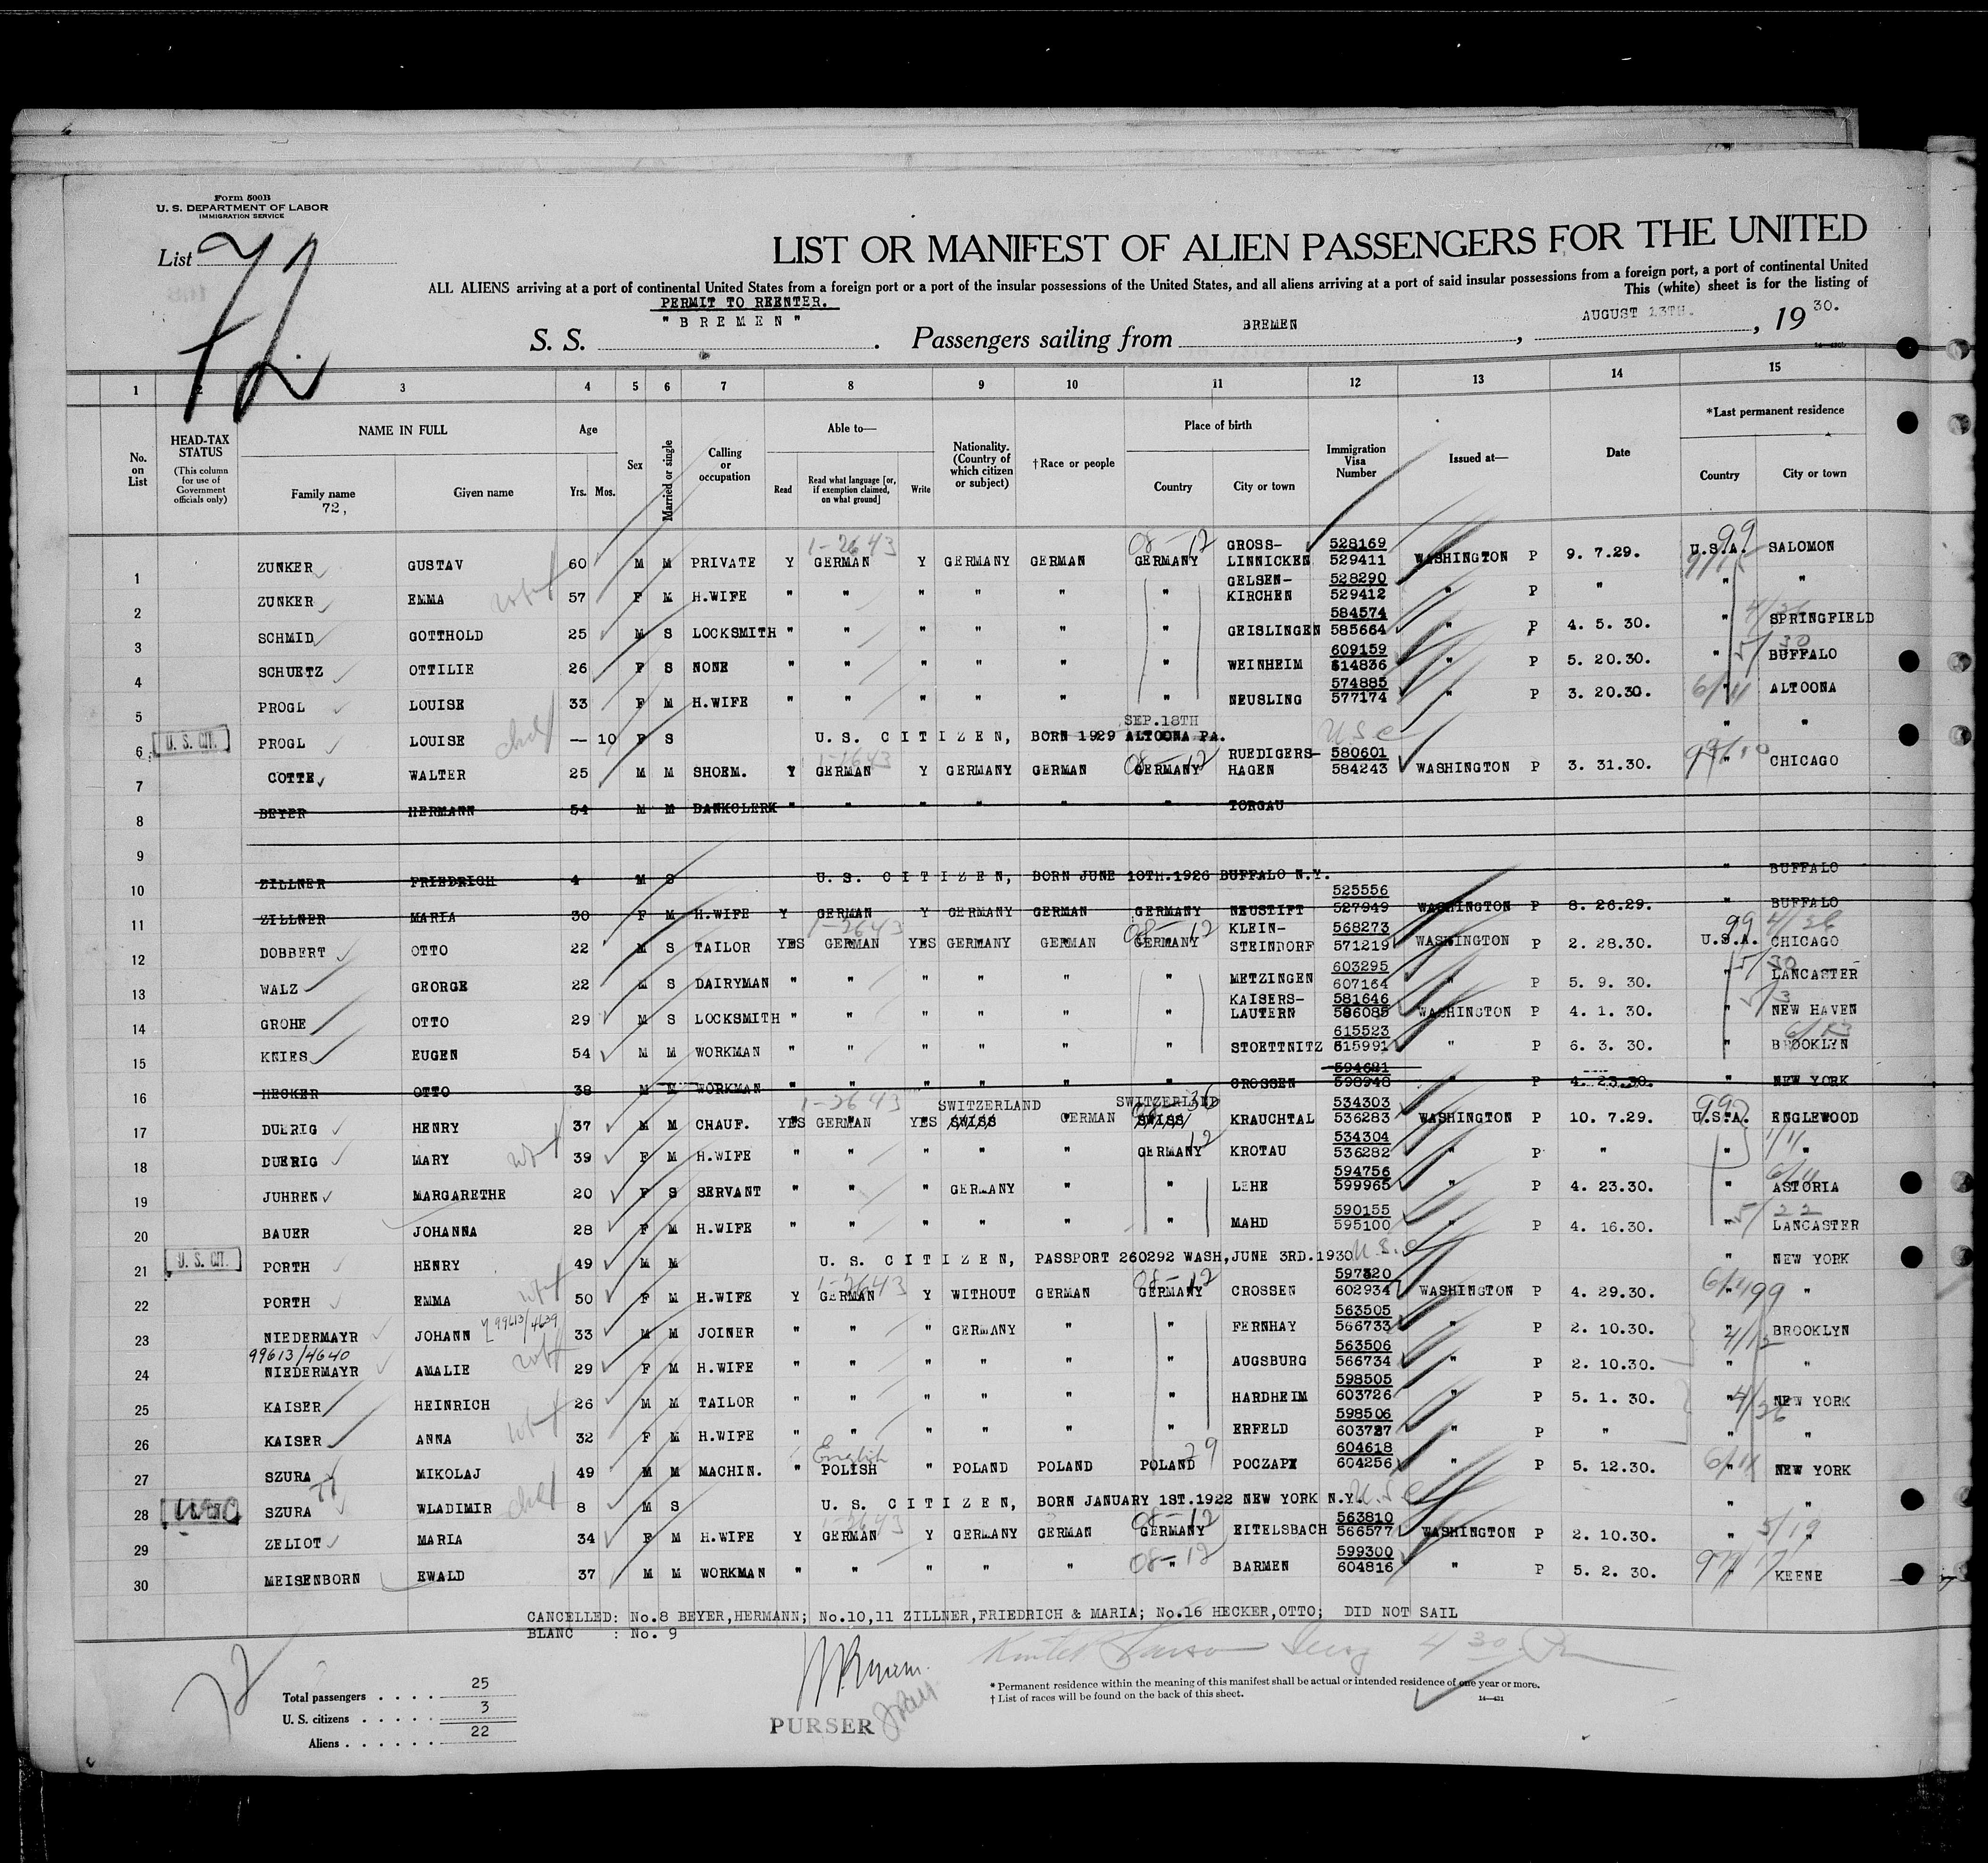 Form 500B
U. S. DEPARTMENT OF LABOR
IMMIGRATION SERVICE
List 72
LIST OR MANIFEST OF ALIEN PASSENGERS FOR THE UNITED
ALL ALIENS arriving at a port of continental United States from a foreign port or a port of the insular possessions of the United States, and all aliens arriving at a port of said insular possessions from a foreign port, a port of continental United
This (white) sheet is for the listing of
PERMIT TO REENTER.
S. S. "BREMEN". Passengers sailing from BREMEN, AUGUST 13TH., 1930.
1 2 3 4 5 6 7 8 9 10 11 12 13 14 15
No. on List
HEAD-TAX STATUS (This column for use of Government officials only)
NAME IN FULL
Family name
72,
Given name
Age
Yrs. Mos.
Sex
Married or single
Calling or occupation
Able to—
Read
Read what language [or, if exemption claimed, on what ground]
Write
Nationality. (Country of which citizen or subject)
†Race or people
Place of birth
Country
City or town
Immigration Visa Number
Issued at—
Date
*Last permanent residence
Country
City or town
1 ZUNKER GUSTAV 60 M M PRIVATE Y GERMAN Y GERMANY GERMAN GERMANY GROSS-LINNICKEN 528169 529411 WASHINGTON P 9. 7.29. U.S.A. SALOMON
2 ZUNKER EMMA 57 F M H.WIFE " " " " " " GELSEN-KIRCHEN 528290 529412 " P " " "
3 SCHMID GOTTHOLD 25 M S LOCKSMITH " " " " " " GEISLINGEN 584574 585664 " P 4. 5. 30. " SPRINGFIELD
4 SCHUETZ OTTILIE 26 F S NONE " " " " " " WEINHEIM 609159 614836 " P 5. 20.30. " BUFFALO
5 PROGL LOUISE 33 F M H.WIFE " " " " " " NEUSLING 574885 577174 " P 3. 20.30. " ALTOONA
6 U. S. CIT. PROGL LOUISE — 10 F S U. S. CITIZEN, BORN SEP.18TH 1929 ALTOONA PA. U.S.C " "
7 COTTE WALTER 25 M M SHOEM. Y GERMAN Y GERMANY GERMAN GERMANY RUEDIGERS-HAGEN 580601 584243 WASHINGTON P 3. 31.30. " CHICAGO
8 BEYER HERMANN 54 M M BANKCLERK " " " " " " TORGAU
9
10 ZILLNER FRIEDRICH 4 M S U. S. CITIZEN, BORN JUNE 10TH.1926 BUFFALO N.Y. " BUFFALO
11 ZILLNER MARIA 30 F M H.WIFE Y GERMAN Y GERMANY GERMAN GERMANY NEUSTIFT 525556 527949 WASHINGTON P 8. 26.29. " BUFFALO
12 DOBBERT OTTO 22 M S TAILOR YES GERMAN YES GERMANY GERMAN GERMANY KLEIN-STEINDORF 568273 571219 WASHINGTON P 2. 28.30. U.S.A. CHICAGO
13 WALZ GEORGE 22 M S DAIRYMAN " " " " " " METZINGEN 603295 607164 " P 5. 9. 30. " LANCASTER
14 GROHE OTTO 29 M S LOCKSMITH " " " " " " KAISERS-LAUTERN 581646 586085 WASHINGTON P 4. 1. 30. " NEW HAVEN
15 KNIES EUGEN 54 M M WORKMAN " " " " " " STOETTNITZ 615523 615991 " P 6. 3. 30. " BROOKLYN
16 HECKER OTTO 38 M M WORKMAN " " " " " " CROSSEN 594621 598948 " P 4. 23.30. " NEW YORK
17 DUERIG HENRY 37 M M CHAUF. YES GERMAN YES SWITZERLAND SWISS GERMAN SWITZERLAND SWISS KRAUCHTAL 534303 536283 WASHINGTON P 10. 7.29. U.S.A. ENGLEWOOD
18 DUERIG MARY 39 F M H.WIFE " " " " " GERMANY KROTAU 534304 536282 " P " " "
19 JUHREN MARGARETHE 20 F S SERVANT " " " GERMANY " " LEHE 594756 599965 " P 4. 23.30. " ASTORIA
20 BAUER JOHANNA 28 F M H.WIFE " " " " " " MAHD 590155 595100 " P 4. 16.30. " LANCASTER
21 U. S. CIT. PORTH HENRY 49 M M U. S. CITIZEN, PASSPORT 260292 WASH,JUNE 3RD.1930 U.S.C " NEW YORK
22 PORTH EMMA 50 F M H.WIFE Y GERMAN Y WITHOUT GERMAN GERMANY CROSSEN 597320 602934 WASHINGTON P 4. 29.30. " "
23 NIEDERMAYR JOHANN 99613/4639 33 M M JOINER " " " GERMANY " " FERNHAY 563505 566733 " P 2. 10.30. " BROOKLYN
99613/4640
24 NIEDERMAYR AMALIE 29 F M H.WIFE " " " " " " AUGSBURG 563506 566734 " P 2. 10.30. " "
25 KAISER HEINRICH 26 M M TAILOR " " " " " " HARDHEIM 598505 603726 " P 5. 1. 30. " NEW YORK
26 KAISER ANNA 32 F M H.WIFE " " " " " " ERFELD 598506 603727 " P " " "
27 SZURA MIKOLAJ 49 M M MACHIN. " English POLISH " POLAND POLAND POLAND POCZAPY 604618 604256 " P 5. 12.30. " NEW YORK
28 SZURA WLADIMIR 8 M S U. S. CITIZEN, BORN JANUARY 1ST.1922 NEW YORK N.Y. U.S.C " "
29 ZELIOT MARIA 34 F M H.WIFE Y GERMAN Y GERMANY GERMAN GERMANY EITELSBACH 563810 566577 WASHINGTON P 2. 10.30. " "
30 MEISENBORN EWALD 37 M M WORKMAN " " " " " " BARMEN 599300 604816 " P 5. 2. 30. " KEENE
CANCELLED: No.8 BEYER,HERMANN; No.10,11 ZILLNER,FRIEDRICH & MARIA; No.16 HECKER,OTTO; DID NOT SAIL
BLANC : No. 9
72
Total passengers . . . . 25
U. S. citizens . . . . . 3
Aliens . . . . . . 22
PURSER
* Permanent residence within the meaning of this manifest shall be actual or intended residence of one year or more.
† List of races will be found on the back of this sheet.
14—421